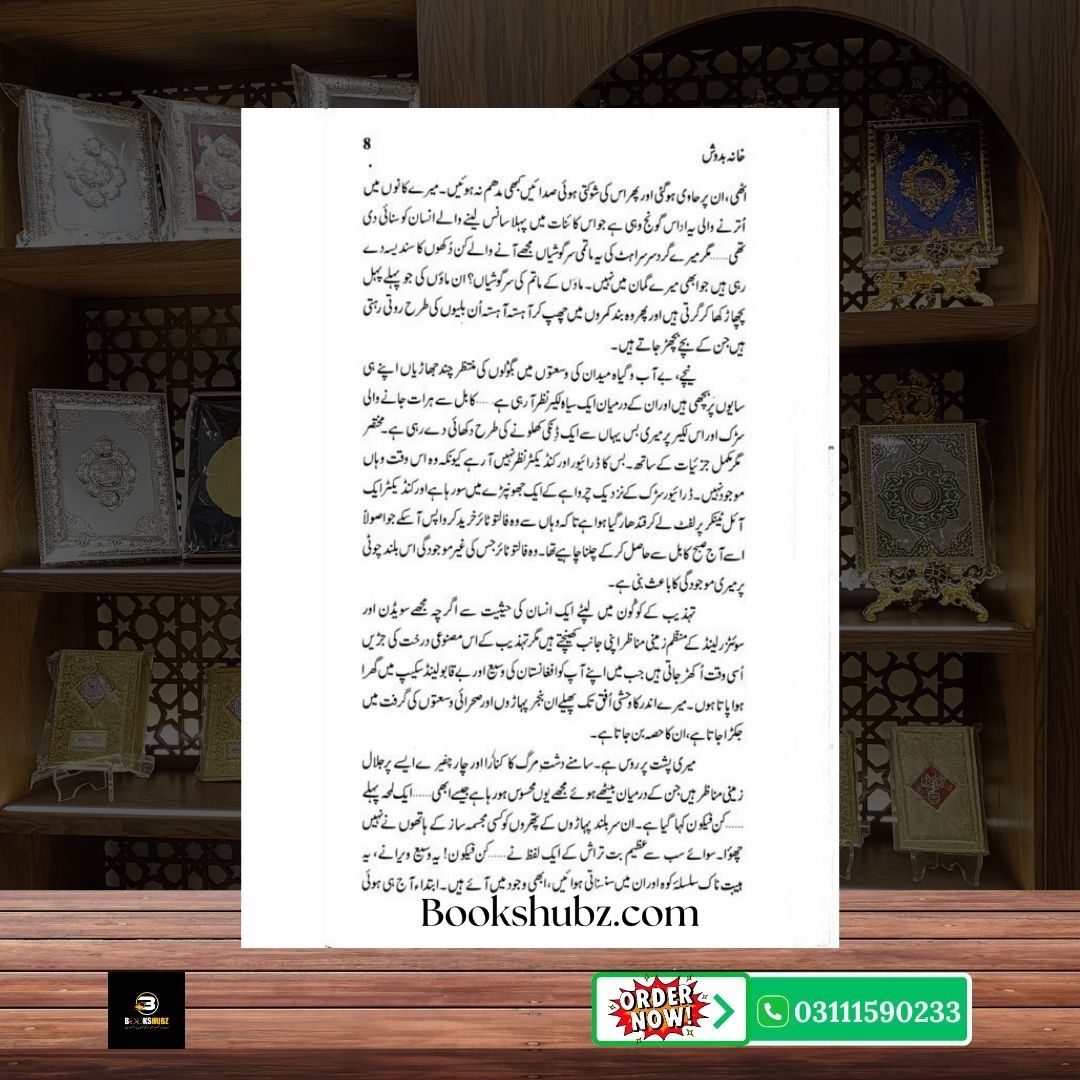 خانہ بدوش
8
اٹھی، ان پر حاوی ہو گئی اور پھر اس کی شوکتی ہوئی صدائیں کبھی مدھم نہ ہوئیں۔ میرے کانوں میں
اُترنے والی یہ اداس گونج وہی ہے جو اس کائنات میں پہلا سانس لینے والے انسان کو سنائی دی
تھی ...... مگر میرے گرد سرسراہٹ کی یہ ماتمی سرگوشیاں مجھے آنے والے کن دُکھوں کا سندیسہ دے
رہی ہیں جو ابھی میرے گمان میں نہیں۔ ماؤں کے ماتم کی سرگوشیاں؟ ان ماؤں کی جو پہلے پہل
پچھاڑ کھا کر گرتی ہیں اور پھر وہ بند کمروں میں چھپ کر آہستہ آہستہ اُن بلیوں کی طرح روتی رہتی
ہیں جن کے بچے بچھڑ جاتے ہیں۔
نیچے، بے آب و گیاہ میدان کی وسعتوں میں بگولوں کی منتظر چند جھاڑیاں اپنے ہی
سایوں پر بچھی ہیں اور ان کے درمیان ایک سیاہ لکیر نظر آ رہی ہے ...... کابل سے ہرات جانے والی
سڑک اور اس لکیر پر میری بس یہاں سے ایک ڈنکی کھلونے کی طرح دکھائی دے رہی ہے۔ مختصر
مگر مکمل جزئیات کے ساتھ۔ بس کا ڈرائیور اور کنڈیکٹر نظر نہیں آ رہے کیونکہ وہ اس وقت وہاں
موجود نہیں۔ ڈرائیور سڑک کے نزدیک چرواہے کے ایک جھونپڑے میں سو رہا ہے اور کنڈیکٹر ایک
آئل ٹینکر پر لفٹ لے کر قندھار گیا ہوا ہے تاکہ وہاں سے وہ فالتو ٹائر خرید کر واپس آ سکے جو اصولاً
اسے آج صبح کابل سے حاصل کر کے چلنا چاہیے تھا۔ وہ فالتو ٹائر جس کی غیر موجودگی اس بلند چوٹی
پر میری موجودگی کا باعث بنی ہے۔
تہذیب کے کوٹون میں لپٹے ایک انسان کی حیثیت سے اگرچہ مجھے سویڈن اور
سوئٹزرلینڈ کے منظم زمینی مناظر اپنی جانب کھینچتے ہیں مگر تہذیب کے اس مصنوعی درخت کی جڑیں
اُسی وقت اُکھڑ جاتی ہیں جب میں اپنے آپ کو افغانستان کی وسیع اور بے قابو لینڈ سکیپ میں گھرا
ہوا پاتا ہوں۔ میرے اندر کا وحشی اُفق تک پھیلے ان بنجر پہاڑوں اور صحرائی وسعتوں کی گرفت میں
جکڑا جاتا ہے، ان کا حصہ بن جاتا ہے۔
میری پشت پر روس ہے۔ سامنے دشتِ مرگ کا کنارا اور چار چفیرے ایسے پرجلال
زمینی مناظر ہیں جن کے درمیان بیٹھے ہوئے مجھے یوں محسوس ہو رہا ہے جیسے ابھی ...... ایک لمحہ پہلے
...... کن فیکون کہا گیا ہے۔ ان سر بلند پہاڑوں کے پتھروں کو کسی مجسمہ ساز کے ہاتھوں نے نہیں
چھوا۔ سوائے سب سے عظیم بت تراش کے ایک لفظ نے ...... کن فیکون! یہ وسیع ویرانے، یہ
ہیبت ناک سلسلۂ کوہ اور ان میں سنسناتی ہوائیں، ابھی وجود میں آئے ہیں۔ ابتداء آج ہی ہوئی
Bookshubz.com
BOOKSHUBZ
ORDER NOW!
03111590233